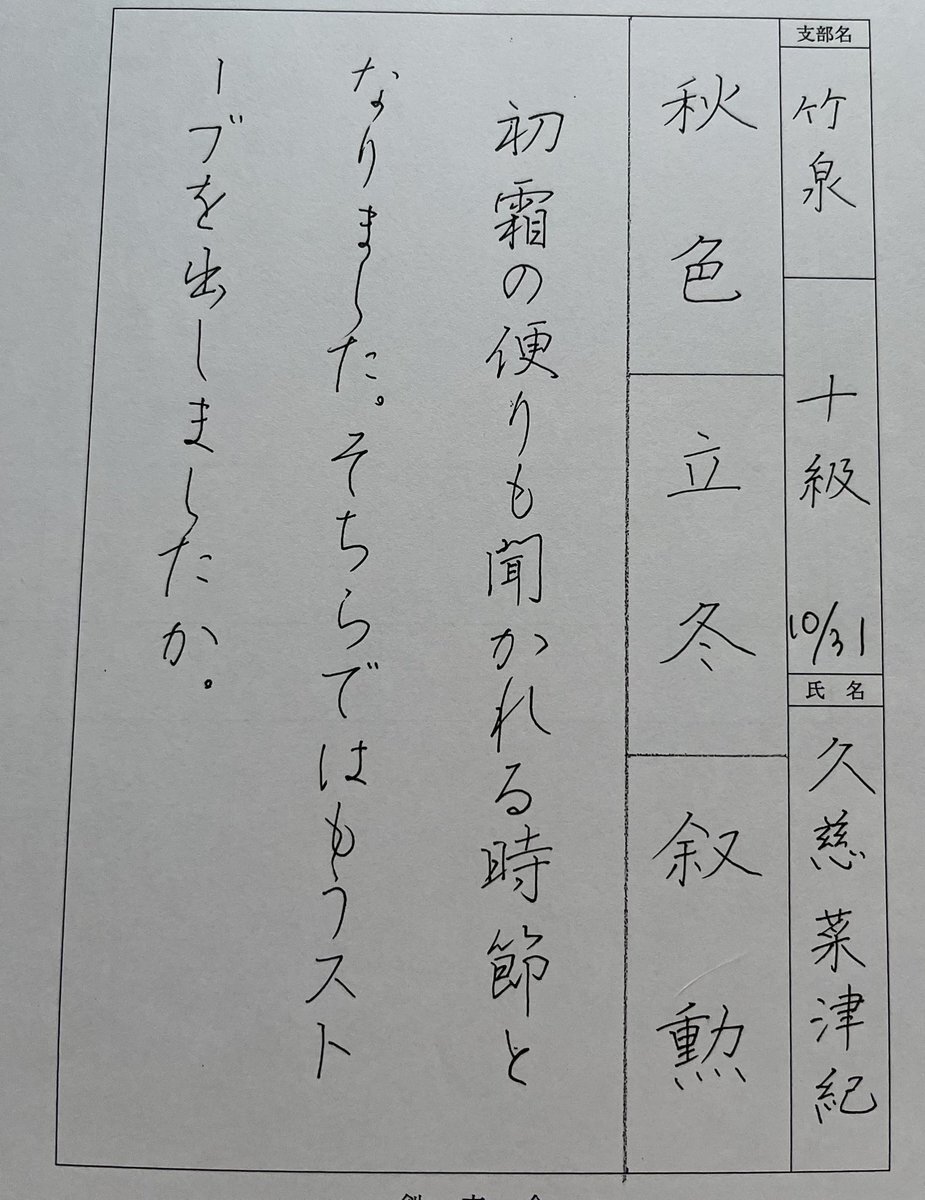 支部名
竹泉
十級
10/31
氏名
久慈菜津紀
秋色
立冬
叙勲
初霜の便りも聞かれる時節と
なりました。そちらではもうスト
ーブを出しましたか。